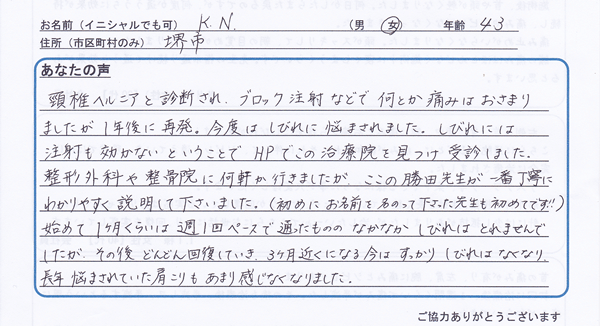 お名前（イニシャルでも可） K.N. （男 女） 年齢 43
住所（市区町村のみ） 堺市
あなたの声
頸椎ヘルニアと診断され、ブロック注射などで何とか痛みはおさまり
ましたが1年後に再発。今度はしびれに悩まされました。しびれには
注射も効かないということでHPでこの治療院を見つけ受診しました。
整形外科や整骨院に何軒か行きましたが、ここの勝田先生が一番丁寧に
わかりやすく説明して下さいました。（初めにお名前を名のって下さった先生も初めてです!!）
始めて1ヶ月くらいは週1回ペースで通ったもののなかなかしびれはとれませんで
したが、その後どんどん回復していき、3ヶ月近くになる今はすっかりしびれはなくなり、
長年悩まされていた肩こりもあまり感じなくなりました。
ご協力ありがとうございます